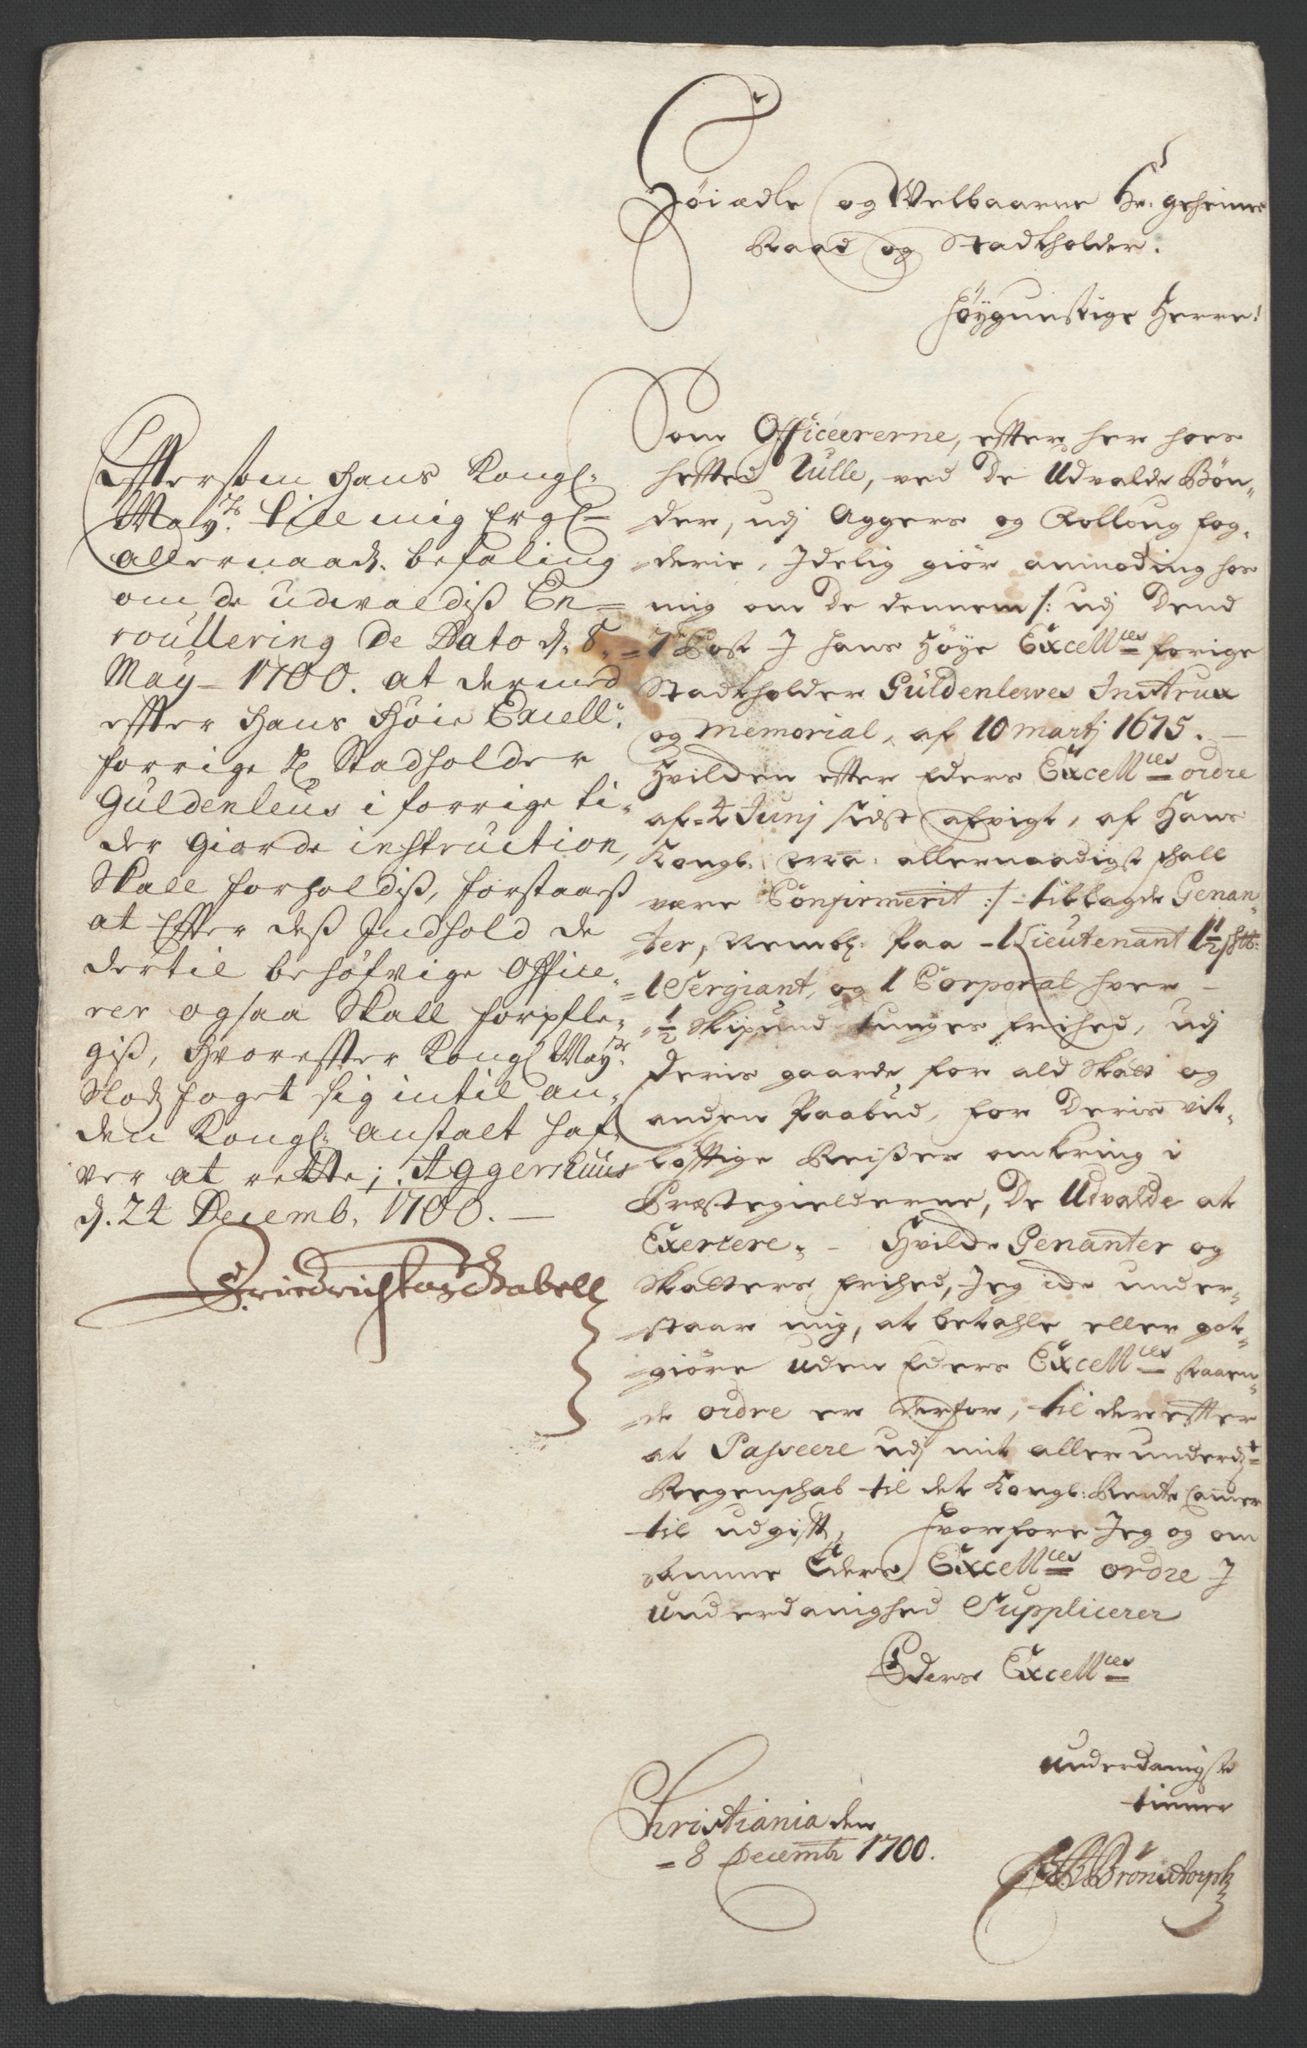 Höiædle og Welbaarne Hr. geheime
Raad og Stadtholder.
Höygunstige Herre!
Som Officererne, efter her hoes
hefted Rulle, ved De Udvalde Bøn-
der, udj Aggers og Folloug fog-
derie, Idelig giör anmoding hos
mig om De dennem /: udj Dend
1ste Post J hans Höye Excellces forige
Stadtholder Güldenlewes Instrux
og Memorial, af 10 Martj 1675.
Hvilden efter Eders Excellces ordre
af 4 Junj sidst afvigt, af Hans
Kongl. Mtt. allernaadigst skall
være Confirmerit :/ tillagde Genan-
ter, Nembl. Paa 1 Lieutenant 1½ skt.
1 Sergiant, og 1 Corporal hver
½ Skipund tunges frihed, udj
deris gaarde, for ald Skatt og
anden Paabud, for Deris vit-
löfftige Reiser omkring i
Præstegielderne, De Udvalde at
Exercere. Hvilde Genanter og
Skatters frihed, Jeg ide under-
staar mig, at betahle eller got-
giöre uden Eders Excellces Naaen-
de ordre er derfor, til derefter
at Passeere udj mit allerunderd:te
Regenschab til det Kongl: Rente Camer
til udgifft, Hvorfore Jeg og om
samme Eders Excellces ordre J
underdanighed Supplicerer
Eders Excellces
underdanigste
tienner
Christiania den
8 Decembr 1700.
Brönstorph
Efftersom Hans Kongl.
Mayts. till mig Ergl
allernaad. befaling
om de udvaldis En-
roullering De Dato d. 8.
May 1700. at dermed
effter Hans Høie Excell.
forrige H Stadholder
Guldenleus i forrige ti-
der giorde instruction,
Skall forholdis, forstaaes
at Effter dess Indhold de
dertil behøfvige Office-
rer ogsaa Skall forpfle-
gis, Hvoreffter Kongl Mayts.
Slodz foget sig intil an-
den Kongl. anstalt haf-
ver at rette; Aggershuus
d. 24 Decemb. 1700.
Friedrich Gabell